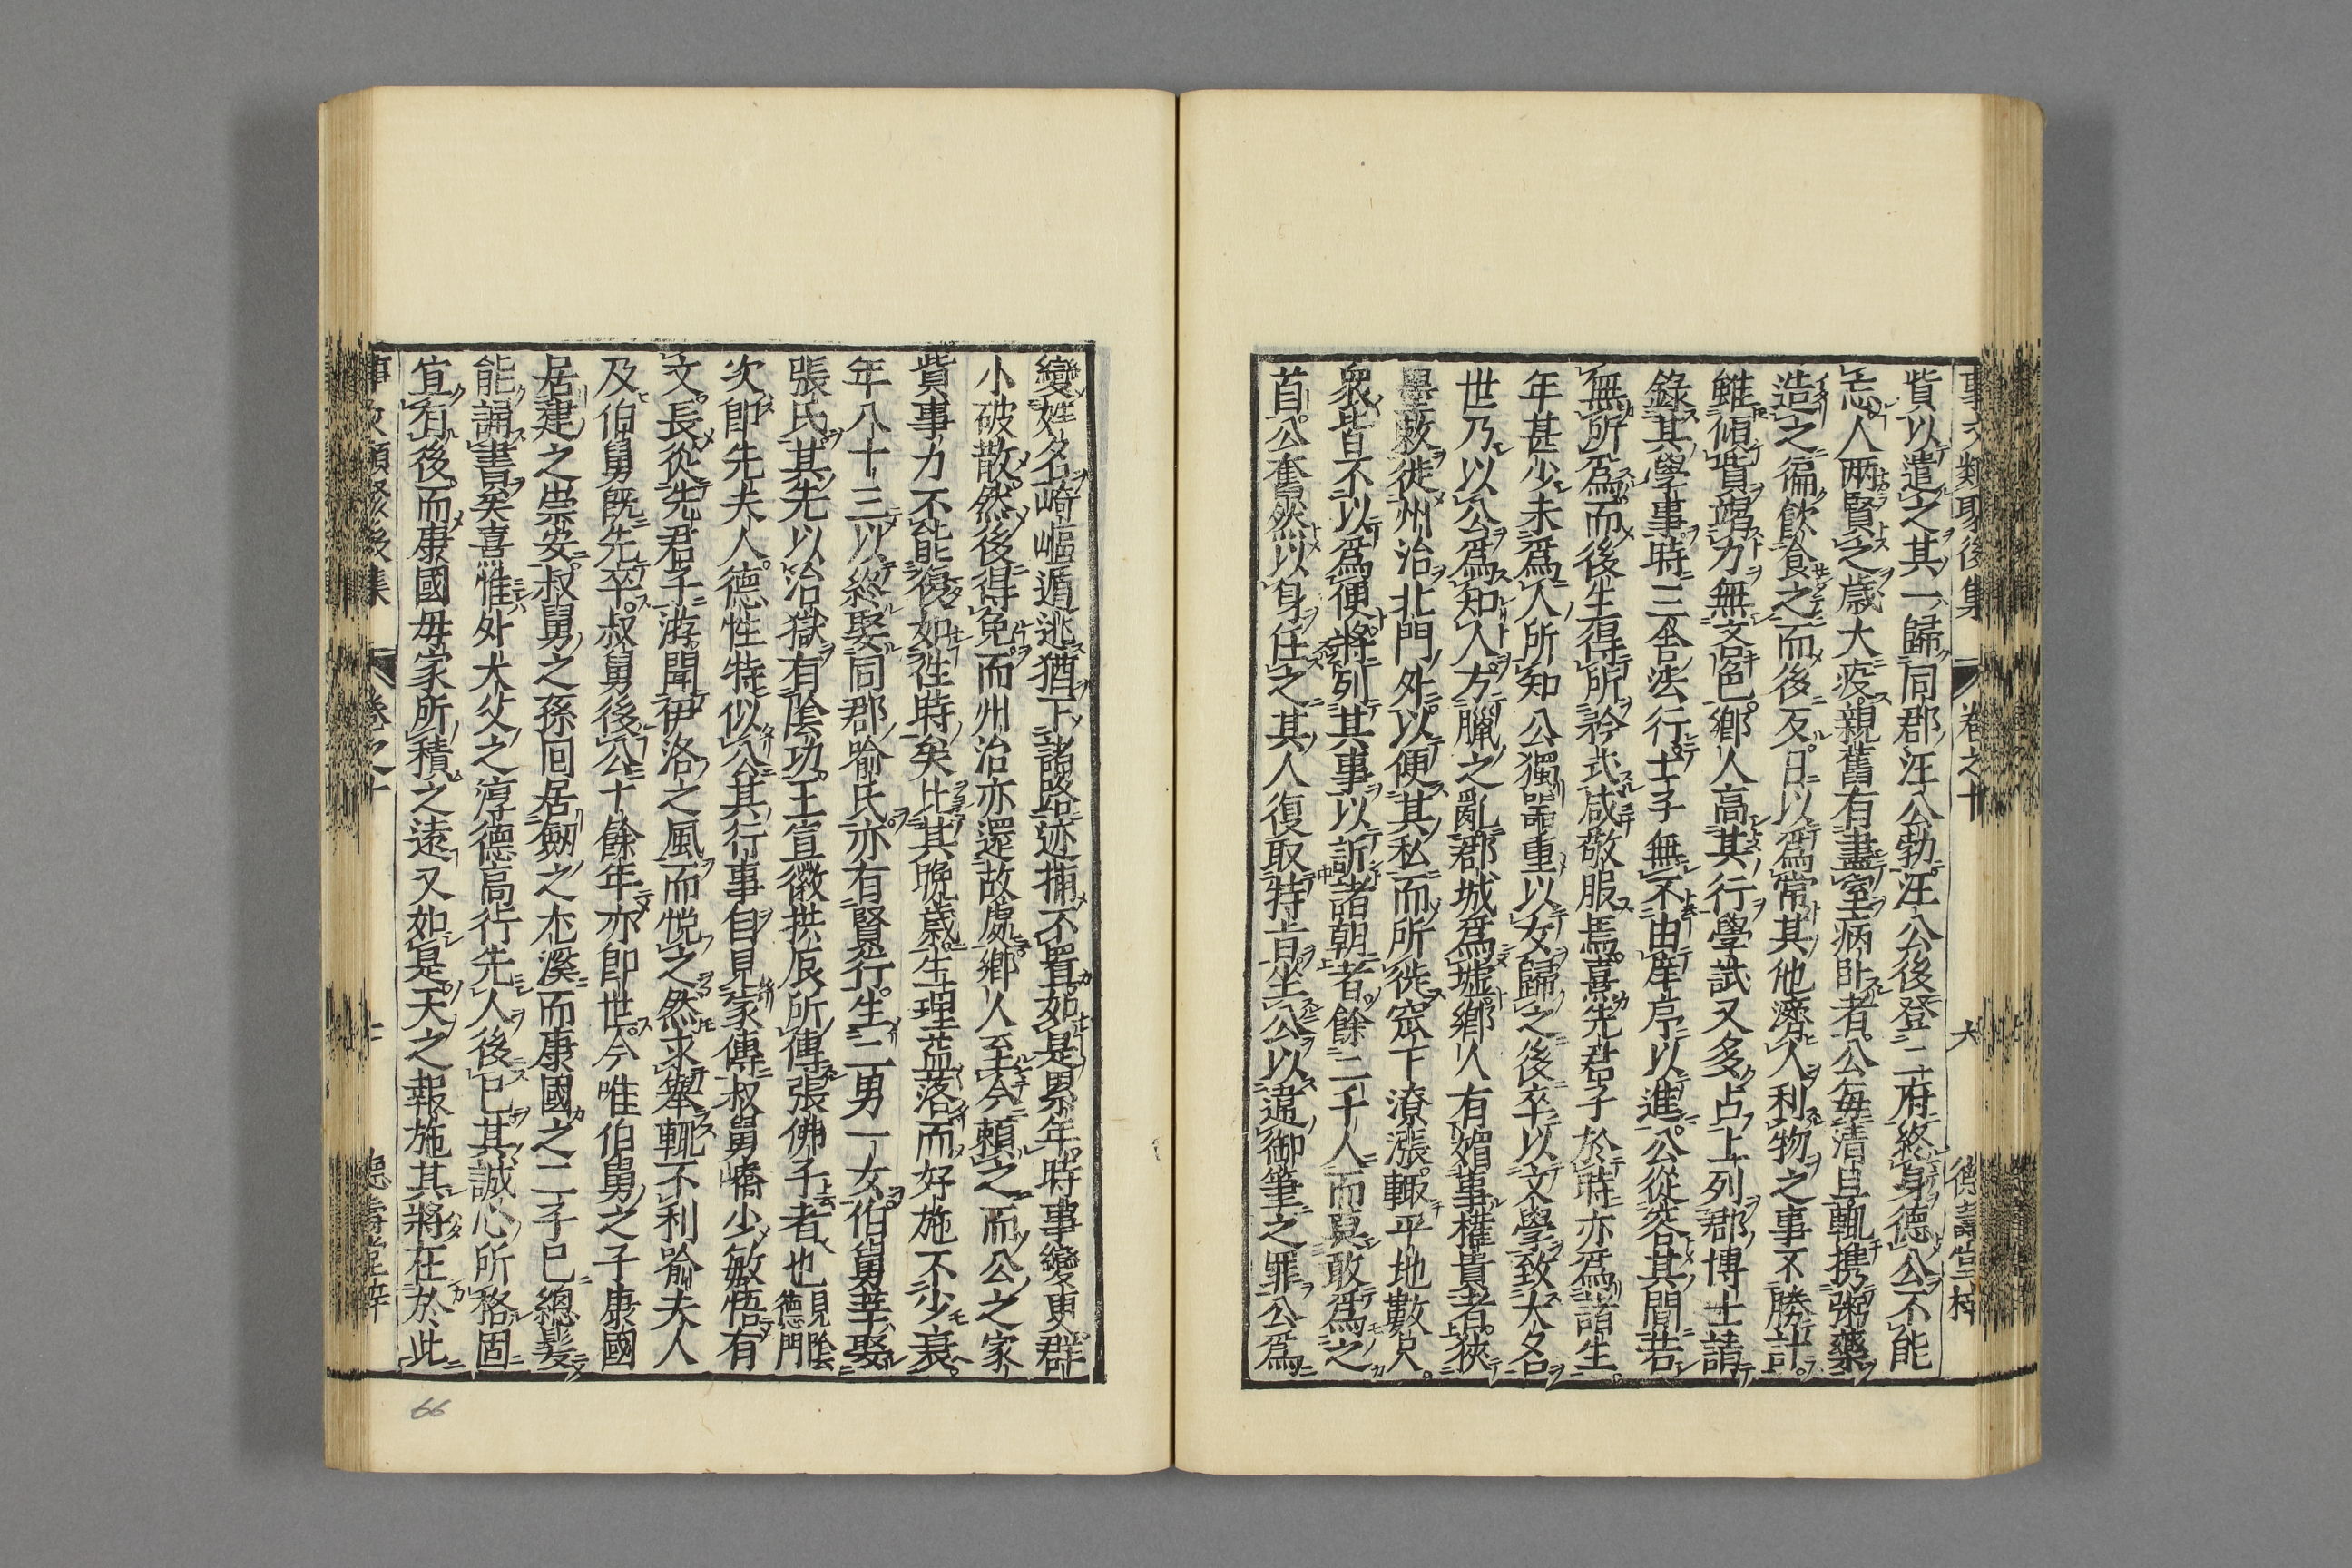 事文類聚後集 卷之十 德壽堂梓
貲以遣之其一歸同郡汪公勃汪公後登二府終身德公不能
忘人兩賢之歲大疫親舊有盡室病臥者公每清旦輒携粥藥
造之徧飮食之而後反日以爲常其他濟人利物之事不勝計
雖傾貲竭力無吝色鄉人高其行學試又多占上列郡博士請
錄其學事時三舍法行士子無不由庠序以進公從容其間若
無所爲而後生得所衿式咸敬服焉熹先君子於時亦爲諸生
年甚少未爲人所知公獨器重以女歸之後卒以文學致大名
世乃以公爲知人方臘之亂郡城爲墟鄉人有媚事權貴者挾
墨敕徙州治北門外以便其私而所徙窊下潦漲輒平地數尺
衆皆不以爲便將列其事以訴諸朝者餘二千人而莫敢爲之
首公奮然以身任之其人復取特旨坐公以違御筆之罪公爲
變姓名崎嶇遁逃猶下諸路迹捕不置如是累年時事變更群
小破散然後得免而州治亦還故處鄉人至今賴之而公之家
貲事力不能復如徃時矣比其晚歲生理益落而好施不少衰
年八十三以終娶同郡喻氏亦有賢行生二男一女伯舅莘娶
張氏其先以治獄有陰功王宣徽拱辰所傳張佛子者也見陰德門
次卽先夫人德性特似公其行事自見家傳叔舅嶠少敏悟有
文長從先君子游聞伊洛之風而悅之然求舉輒不利喻夫人
及伯舅旣先卒叔舅後公十餘年亦卽世今唯伯舅之子康國
居建之崇安叔舅之孫回居劔之尤溪而康國之二子已總髮
能誦書矣熹惟外大父之淳德高行先人後己其誠心所格固
宜有後而康國毋家所積之遠又如是天之報施其將在於此
事文類聚後集 卷之十 德壽堂梓
66